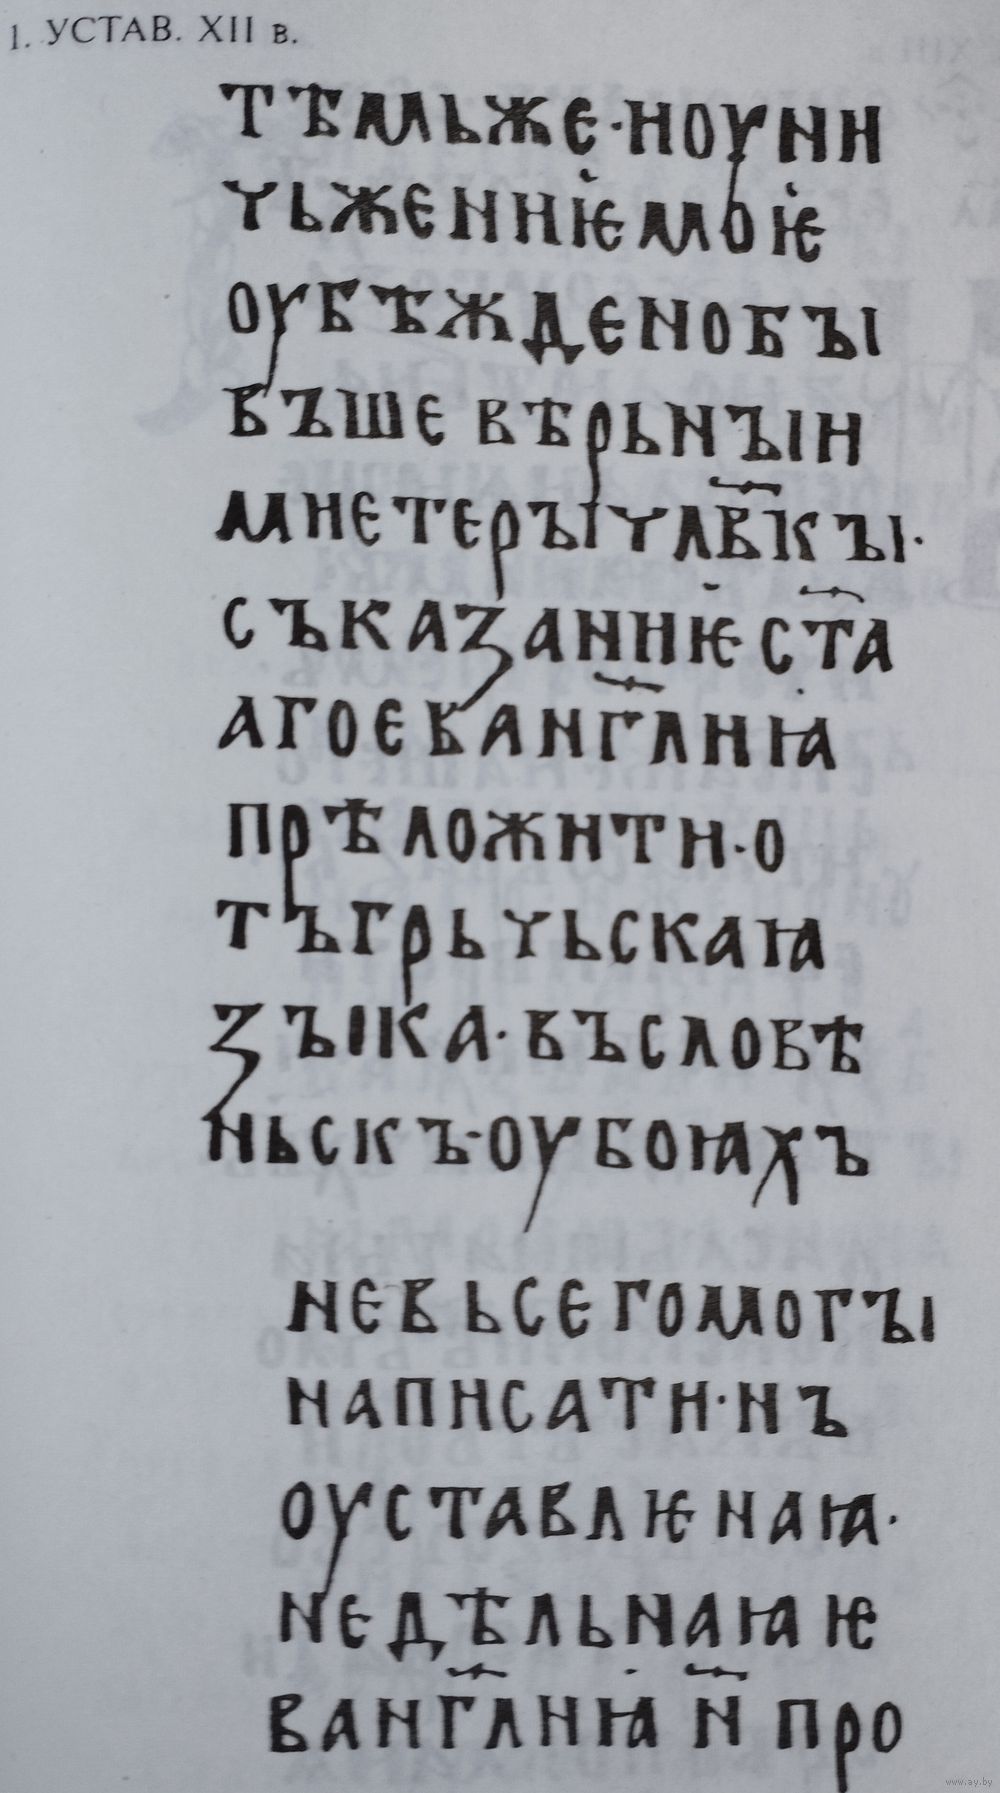 1. УСТАВ. XII в.
тѣмьже·ноуни
чьжениѥмоѥ
оубѣжденобы
въшевѣрьныи
мнетерычл҃вкы·
съказаниѥст҃а
агоеванг҃лиꙗ
прѣложити·о
тъгрьчьскаꙗ
зыка·въсловѣ
ньскъ·оубоꙗхъ
невьсегомогы
написати·нъ
оуставлѥнаꙗ·
недѣльнаꙗѥ
ванг҃лиꙗ и҃ про
www.ay.by